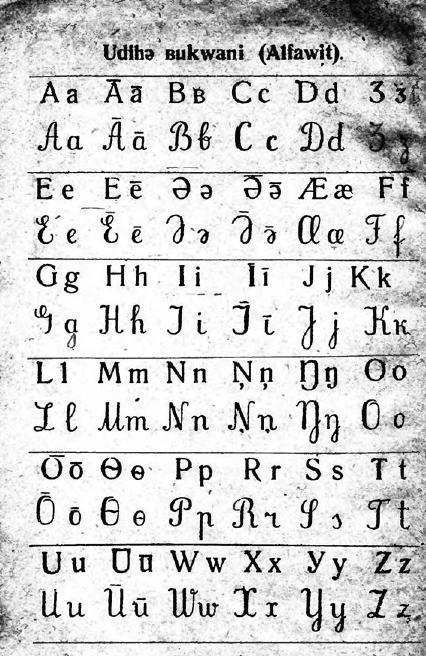 Udihə ʙukwani (Alfawit).
Aa Āā Bʙ Cc Dd Ʒʒ
Aa Āā Bʙ Cc Dd Ʒʒ
Ee Ēē Əə Ə̄ə̄ Ææ Ff
Ee Ēē Əə Ə̄ə̄ Ææ Ff
Gg Hh Ii Īī Jj Kk
Gg Hh Ii Īī Jj Kk
Ll Mm Nn Ņņ Ŋŋ Oo
Ll Mm Nn Ņņ Ŋŋ Oo
Ōō Ɵɵ Pp Rr Ss Tt
Ōō Ɵɵ Pp Rr Ss Tt
Uu Ūū Ww Xx Yy Zz
Uu Ūū Ww Xx Yy Zz